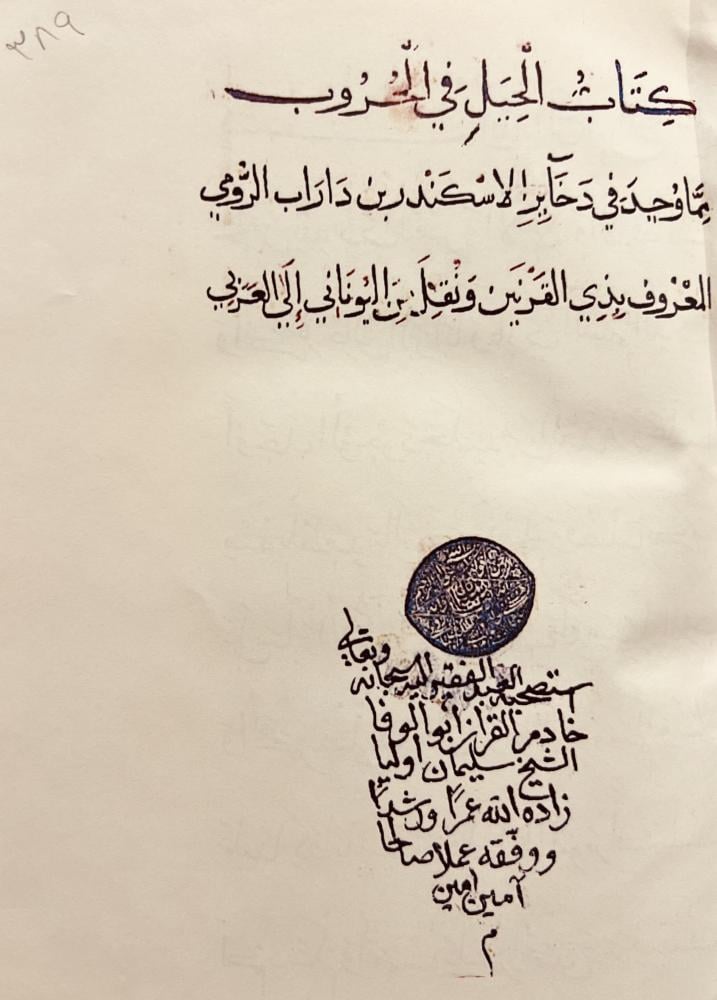 ٣٨٩
كِتَابُ الْحِيَلِ فِي الْحُرُوب
مِمَّا وُجِدَ فِي دَخَآيِرِ الاسْكَنْدر بن دَارَاب الرُّومِي
المعْرُوف بِذِي القَرْنَين وَنُقِلَ مِنَ اليُونَانِي إِلَى العَرَبِي
استصحبه العبد الفقير اليه سبحانه وتعالى
خادم القران ابو الوفا
الشيخ سليمان اوليا
زاده الله عمرًا ورشدًا
ووفّقه عملا صالحا
آمين امين
م